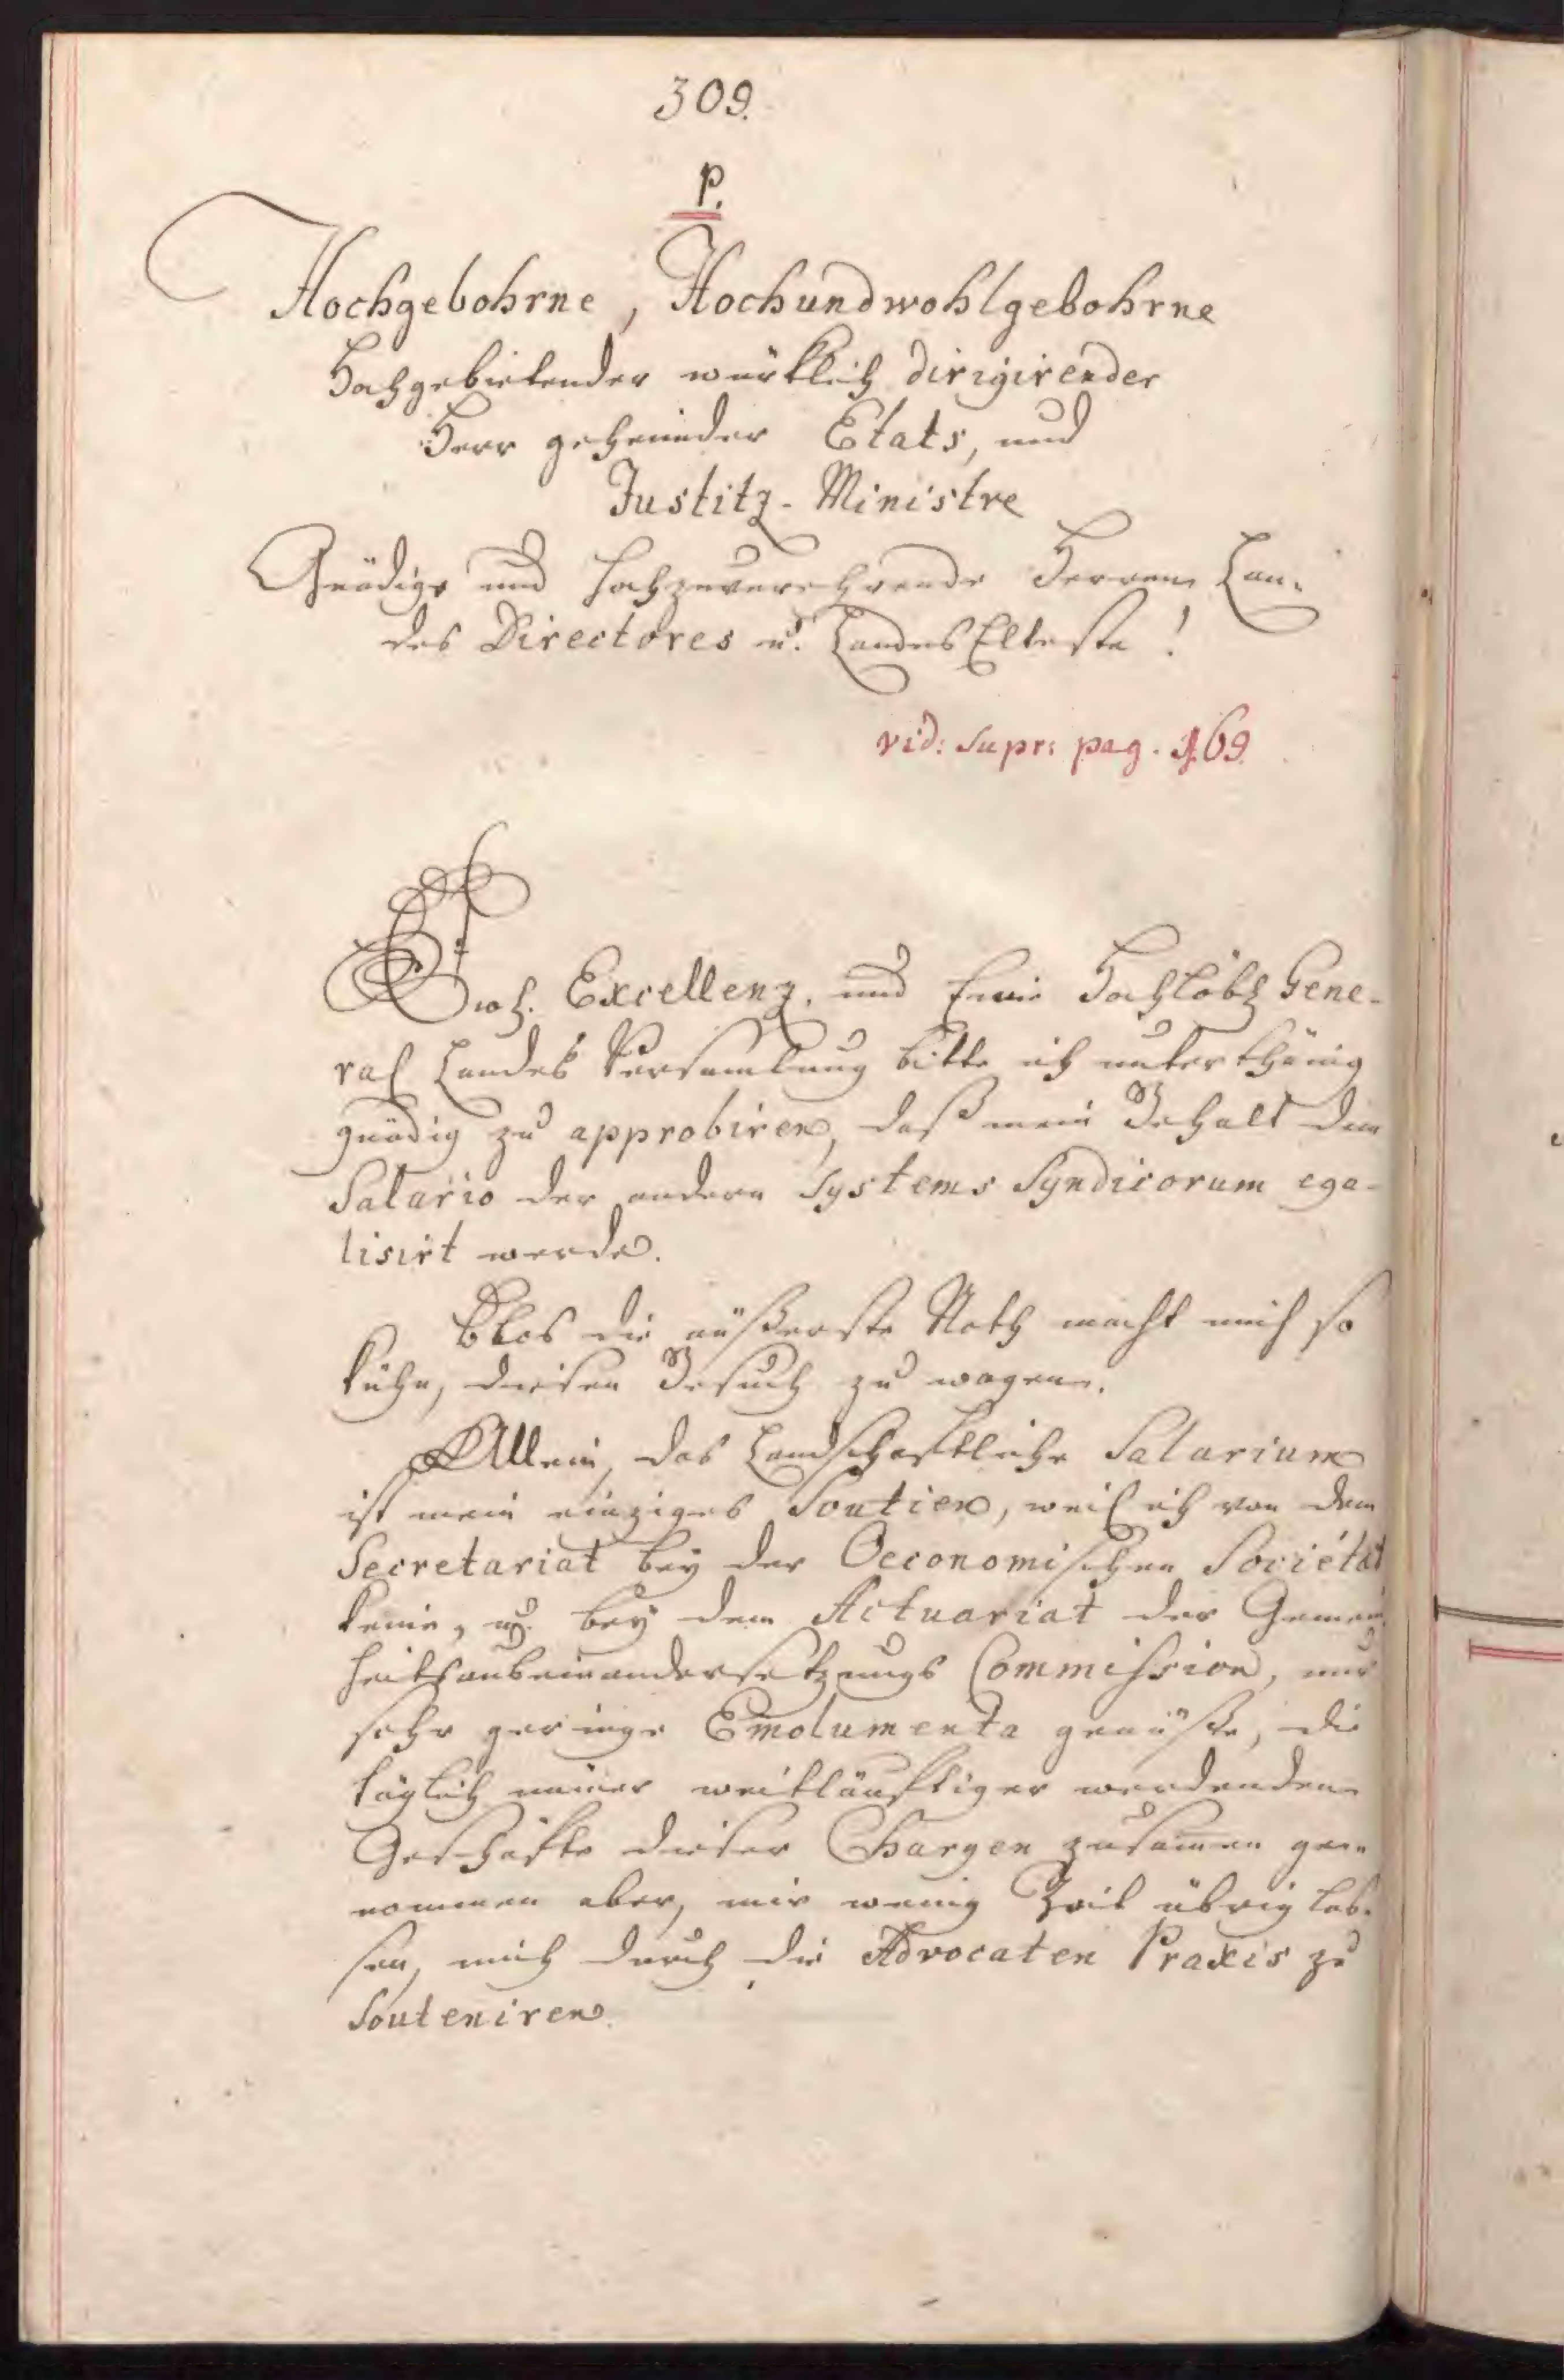 309.
P.
Hochgebohrne, Hochundwohlgebohrne
Hochgebietender würklich dirigirender
Herr geheimder Etats, und
Justitz-Ministre
Gnädige und hochzuverehrende Herren Lan-
des Directores u. Landes Elteste!
vid: supr: pag. 169.
Ew. Excellenz, und Eine Hochlöbl Gene-
ral Landes Versamlung bitte ich unterthänig
gnädig zu approbiren, daß mein Gehalt dem
Salario der andern Systems Syndicorum ega-
lisirt werde.
Blos die äußerste Noth macht mich so
kühn, diesen Gesuch zu wagen.
Allein, das Landschaftliche Salarium
ist mein einziges Soutien, weil ich von dem
Secretariat bey der Oeconomischen Societät
keine, u. bey dem Actuariat der Gemein
heitsauseinandersetzungs Commission, nur
sehr geringe Emolumenta genüße, die
täglich immer weitläuftiger werdenden
Geschäfte dieser Chargen zusamen ge-
nommen aber, mir wenig Zeit übrig las-
sen, mich durch die Advocaten Praxis zu
souteniren.